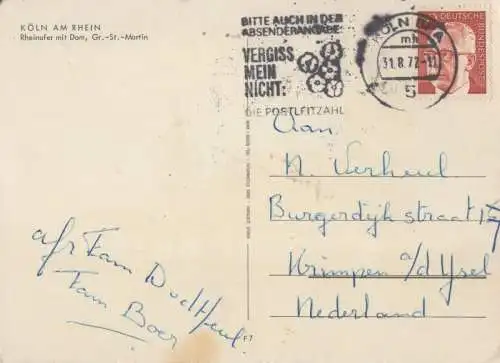 KÖLN AM RHEIN
Rheinufer mit Dom, Gr.-St.-Martin
BITTE AUCH IN DER
ABSENDERANGABE
VERGISS
MEIN
NICHT:
DIE POSTLEITZAHL
KÖLN
mk
31.8.72-11
5
DEUTSCHE BUNDESPOST
Aan
N. Verheul
Burgerdijk straat
Krimpen a/d Ysel
Nederland
afz Fam
Fam Boer